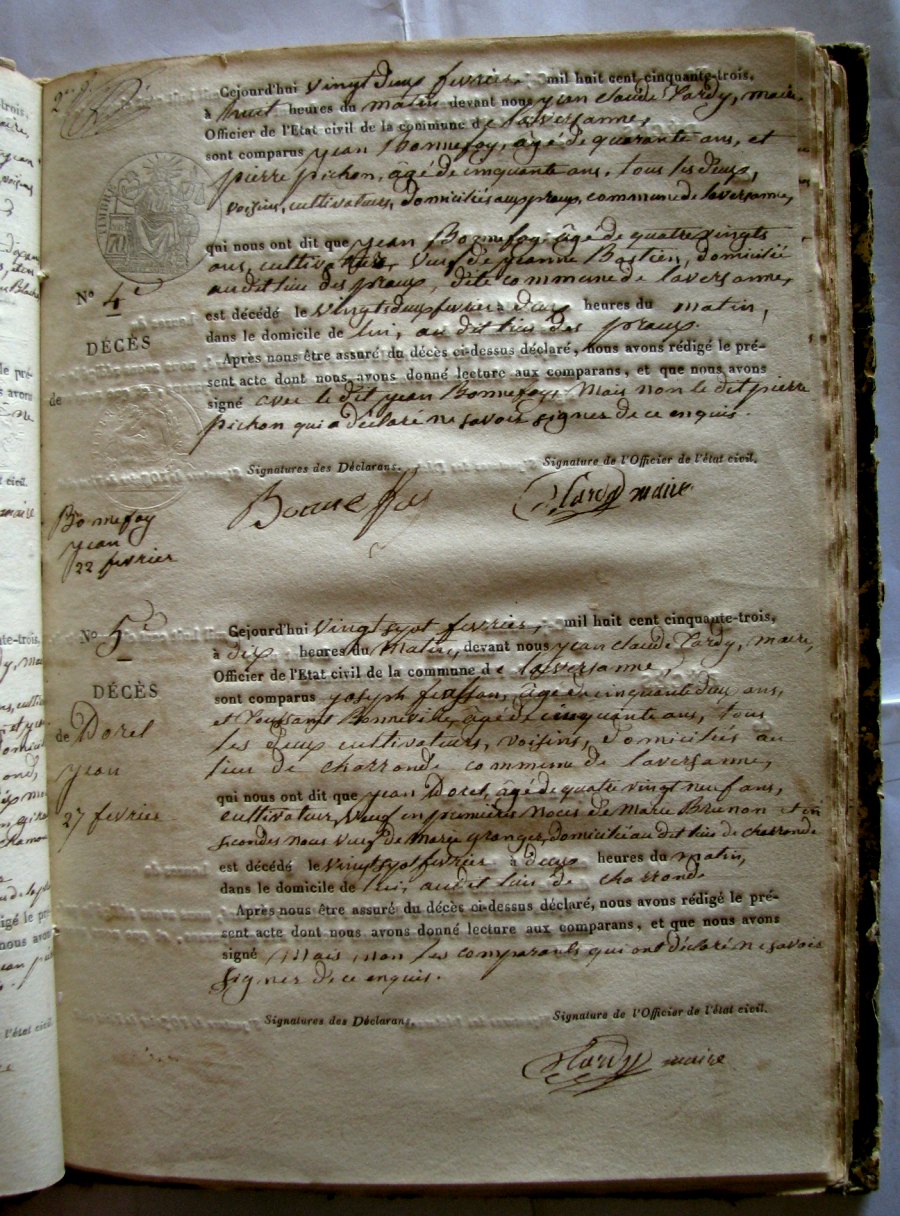 Cejourd'hui vingt deux fevrier, mil huit cent cinquante-trois,
à huit heures du matin devant nous jean claude Tardy, maire
Officier de l'Etat civil de la commune de laversanne,
sont comparus jean Bonnefoy, âgé de quarante ans, et
pierre pichon, âgé de cinquante ans, tous les deux,
voisins, cultivateurs, domiciliés aux praux, commune de laversanne,
qui nous ont dit que jean Bonnefoy âgé de quatre vingts
ans, cultivateur, veuf de jeanne Bastien, domicilié
audit lieu des praux, dite commune de laversanne,
est décédé le vingt deux fevrier à deux heures du matin,
dans le domicile de lui, au dit lieu des praux.
Après nous être assuré du décès ci-dessus déclaré, nous avons rédigé le pré-
sent acte dont nous avons donné lecture aux comparans, et que nous avons
signé avec le dit jean Bonnefoy, Mais non le dit pierre
pichon qui a déclaré ne savoir signer de ce enquis.
Signatures des Déclarans. Signature de l'Officier de l'état civil.
Bonnefoy Tardy maire
TIMBRE
No 4
DÉCÈS
de
Bonnefoy
jean
22 fevrier
No 5
DÉCÈS
de Dorel
jean
27 fevrier
Cejourd'hui vingt sept fevrier, mil huit cent cinquante-trois,
à dix heures du Matin, devant nous jean claude Tardy, maire,
Officier de l'Etat civil de la commune de laversanne,
sont comparus joseph âgé de cinquante deux ans,
et Toussaint Bonneville, âgé de cinquante ans, tous
les deux cultivateurs, voisins, domiciliés au
lieu de charronde commune de laversanne,
qui nous ont dit que jean Dorel, âgé de quatre vingt neuf ans,
cultivateur, veuf en premières noces de Marie Brunon et en
secondes noces veuf de Marie Granger, domicilié au dit lieu de charronde
est décédé le vingt sept fevrier à deux heures du matin,
dans le domicile de lui, audit lieu de charronde
Après nous être assuré du décès ci-dessus déclaré, nous avons rédigé le pré-
sent acte dont nous avons donné lecture aux comparans, et que nous avons
signé Mais non les comparants qui ont déclaré ne savoir
signer de ce enquis.
Signatures des Déclarans. Signature de l'Officier de l'état civil.
Tardy maire